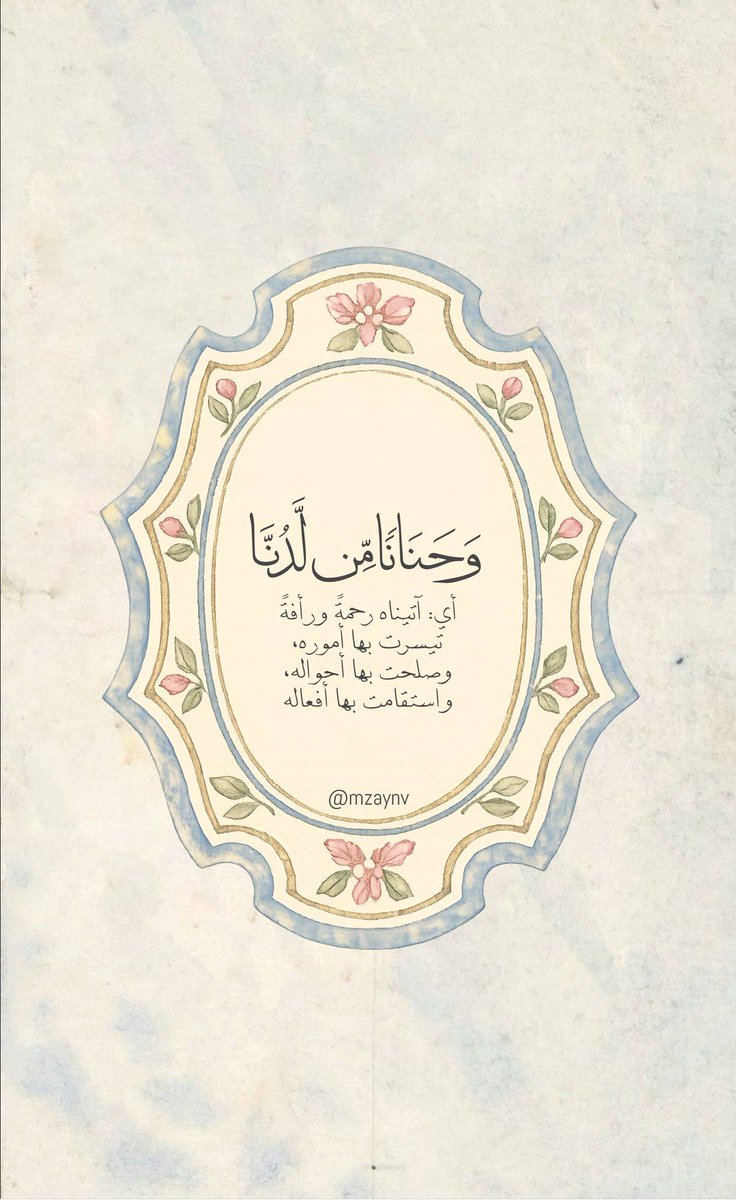 وَحَنَانًا مِّن لَّدُنَّا
أي: آتيناه رحمةً ورأفةً
تيسرت بها أموره،
وصلحت بها أحواله،
واستقامت بها أفعاله
@mzaynv